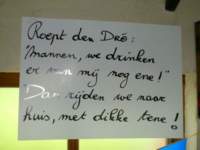 Roept den Dré:
"Mannen, we drinken
er van mij nog ene!"
Dan rijden we naar
huis, met dikke tene!